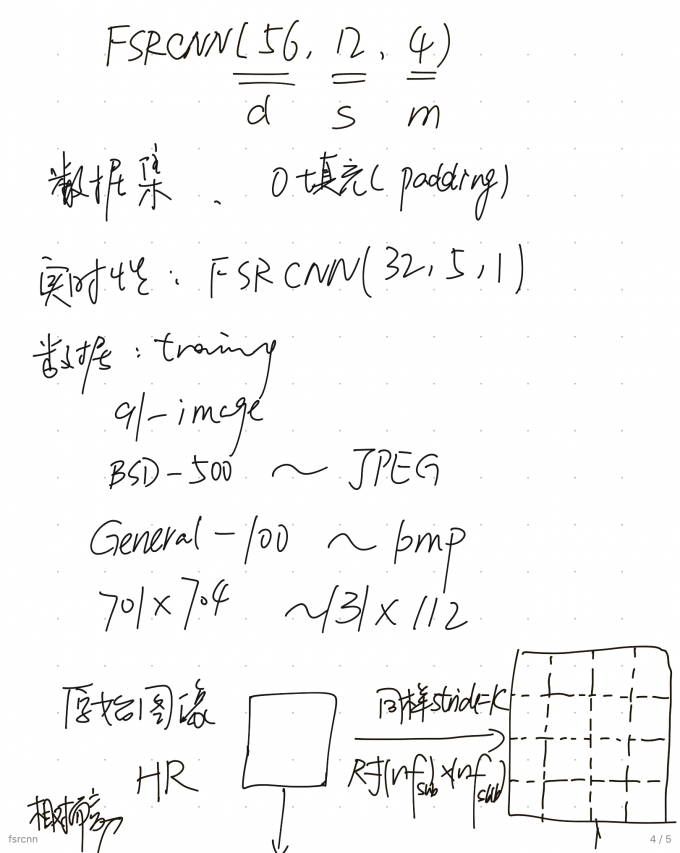 FSRCNN(56, 12, 4)
d s m
数据集、0填充(padding)
实时性: FSRCNN(32,5,1)
数据: training
91-image
BSD-500 ~ JPEG
General-100 ~ bmp
701×704 ~ 131×112
原始图像
HR
同样stride=k
尺寸(nf_sub)×(nf_sub)
相对而言
fsrcnn
4 / 5